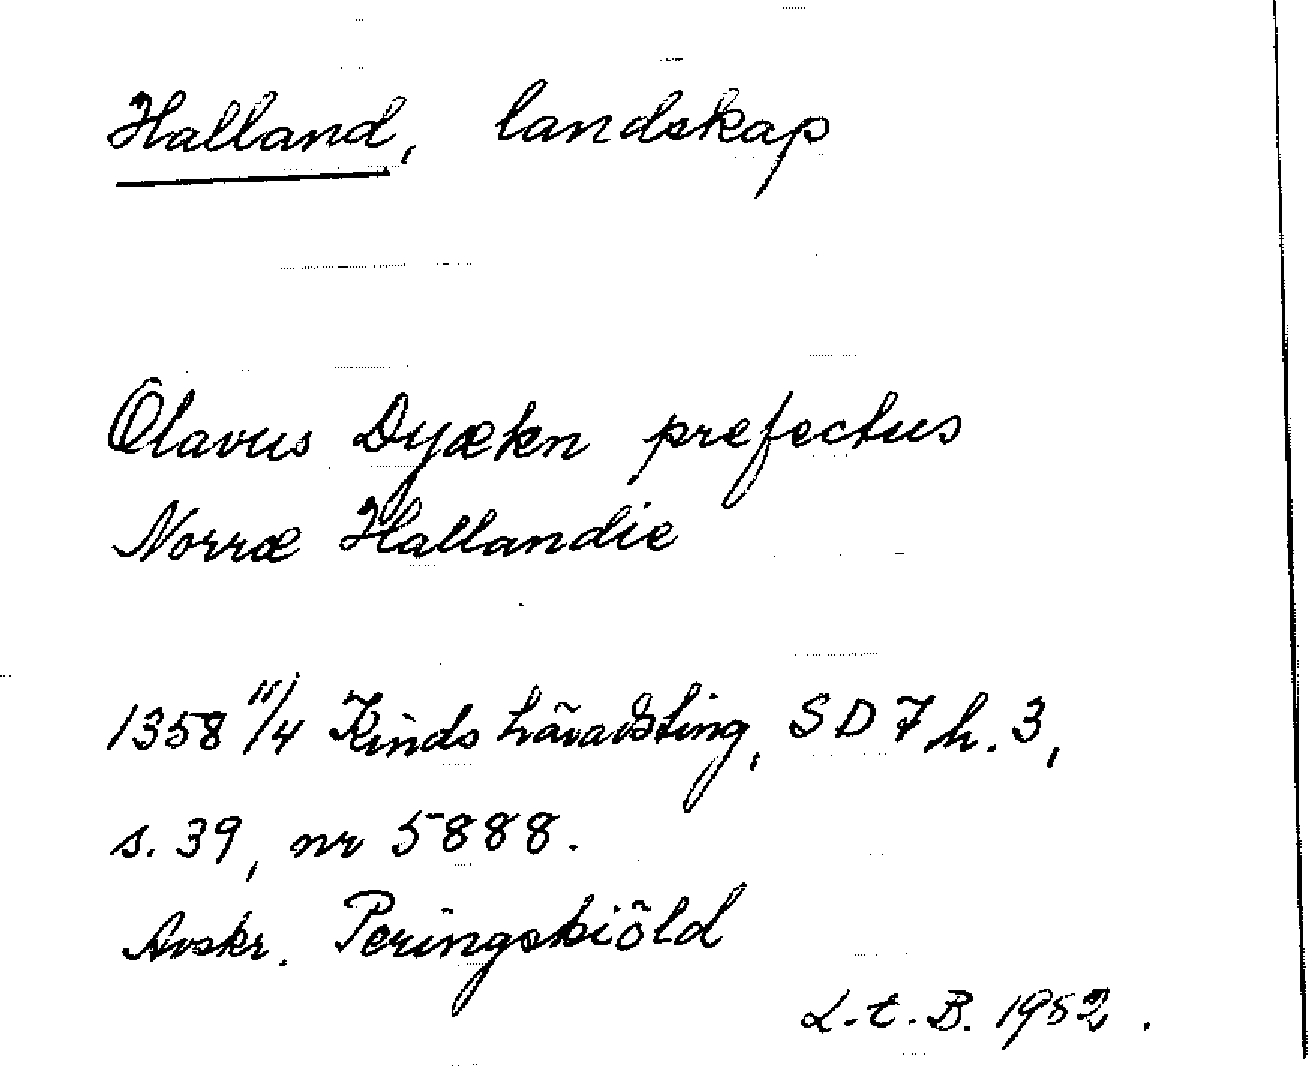 Halland, landskap
Olavus Dyækn prefectus
Norræ Hallandie
1358 11/4 Kinds häradsting, SD 7 h. 3,
s. 39, nr 5888.
Avskr. Peringskiöld
L.t.B. 1952.